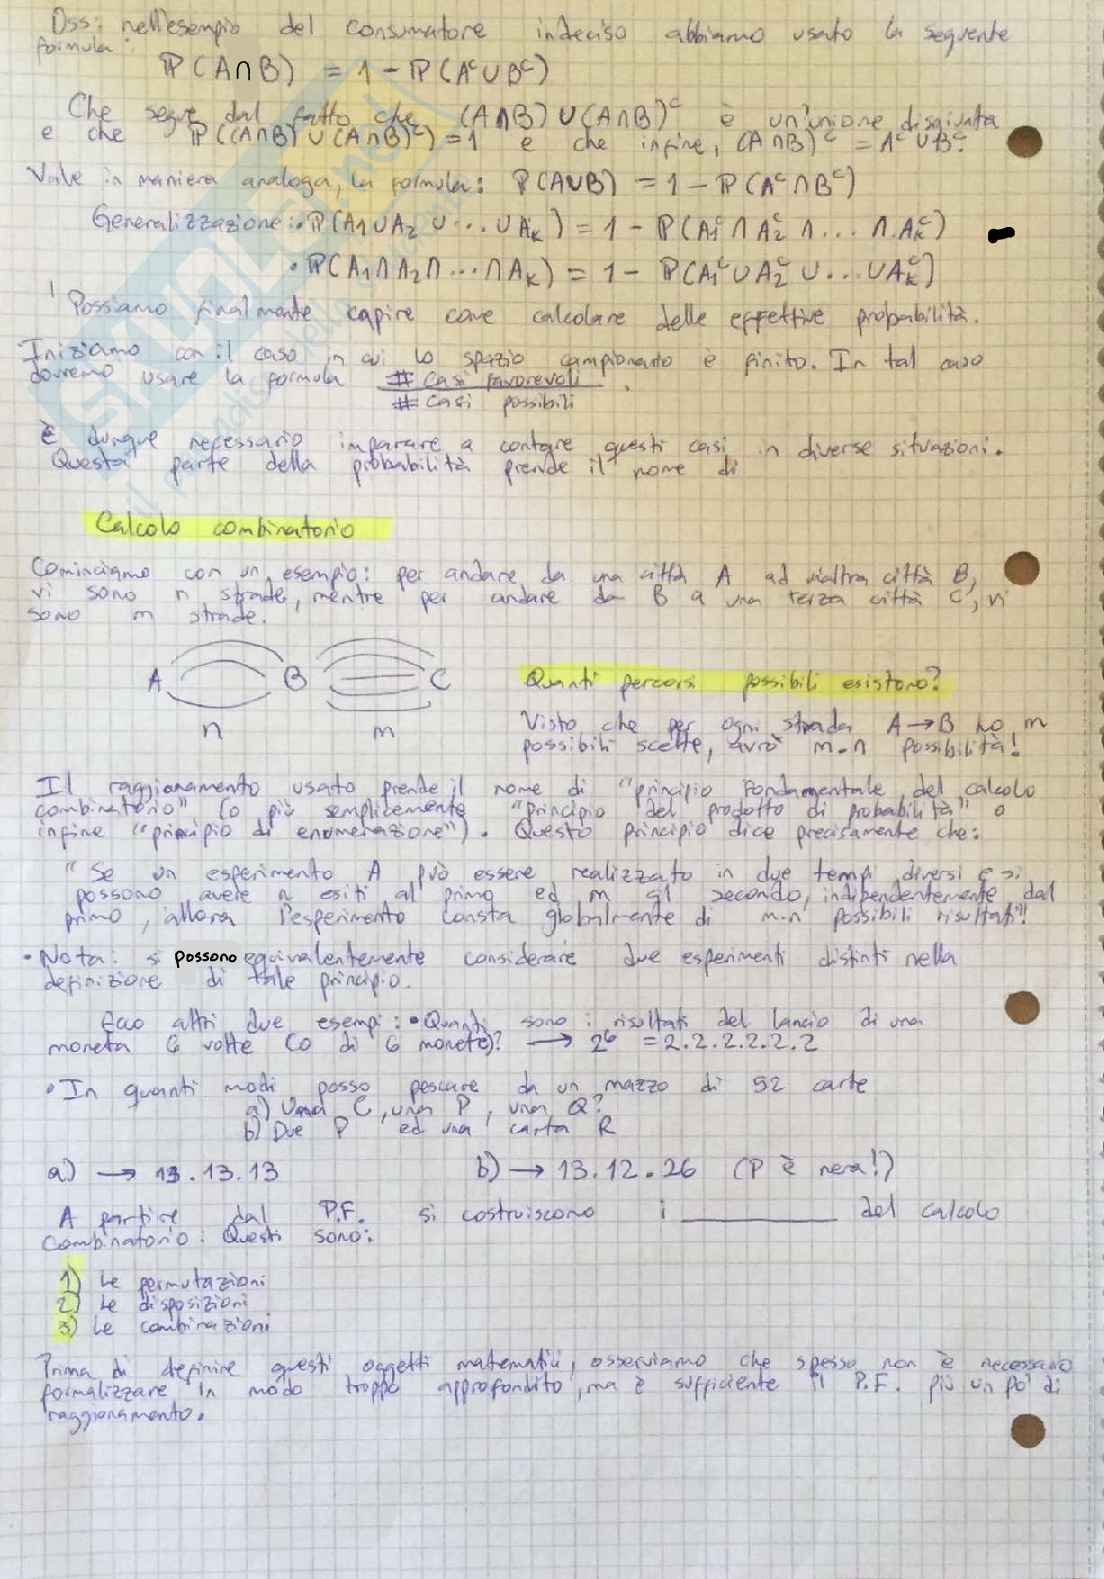 Oss: nell'esempio del consumatore indeciso abbiamo usato la seguente
formula:
ℙ(A∩B) = 1 - ℙ(Aᶜ∪Bᶜ)
Che segue dal fatto che (A∩B) ∪ (A∩B)ᶜ è un'unione disgiunta
e che ℙ((A∩B) ∪ (A∩B)ᶜ) = 1 e che infine, (A∩B)ᶜ = Aᶜ∪Bᶜ.
Vale in maniera analoga, la formula: ℙ(A∪B) = 1 - ℙ(Aᶜ∩Bᶜ)
Generalizzazione: • ℙ(A₁∪A₂ ∪ ... ∪Aₖ) = 1 - ℙ(A₁ᶜ ∩ A₂ᶜ ∩ ... ∩ Aₖᶜ)
• ℙ(A₁∩A₂∩ ... ∩Aₖ) = 1 - ℙ(A₁ᶜ∪A₂ᶜ ∪ ... ∪Aₖᶜ)
Possiamo finalmente capire come calcolare delle effettive probabilità.
Iniziamo con il caso in cui lo spazio campionario è finito. In tal caso
dovremo usare la formula # casi favorevoli .
# casi possibili
È dunque necessario imparare a contare questi casi in diverse situazioni.
Questa parte della probabilità prende il nome di
Calcolo combinatorio
Cominciamo con un esempio: per andare da una città A ad un'altra città B,
vi sono n strade, mentre per andare da B a una terza città C, vi
sono m strade.
A B C
n m
Quanti percorsi possibili esistono?
Visto che per ogni strada A→B ho m
possibili scelte, avrò m.n possibilità!
Il raggionamento usato prende il nome di "principio fondamentale del calcolo
combinatorio" (o più semplicemente "principio del prodotto di probabilità" o
infine "principio di enumerazione"). Questo principio dice precisamente che:
"Se un esperimento A può essere realizzato in due tempi diversi e si
possono avere n esiti al primo ed m al secondo, indipendentemente dal
primo, allora l'esperimento consta globalmente di m.n possibili risultati"!
• Nota: si possono equivalentemente considerare due esperimenti distinti nella
definizione di tale principio.
Ecco altri due esempi: • Quanti sono i risultati del lancio di una
moneta 6 volte (o di 6 monete)? → 2⁶ = 2.2.2.2.2.2
• In quanti modi posso pescare da un mazzo di 52 carte
a) Una C, una P, una Q?
b) Due P ed una carta R
a) → 13.13.13 b) → 13.12.26 (P è nera!)
A partire dal P.F. si costruiscono i ________ del calcolo
combinatorio. Questi sono:
1) Le permutazioni
2) Le disposizioni
3) Le combinazioni
Prima di definire questi oggetti matematici, osserviamo che spesso non è necessario
formalizzare in modo troppo approfondito, ma è sufficiente il P.F. più un po' di
raggionamento.